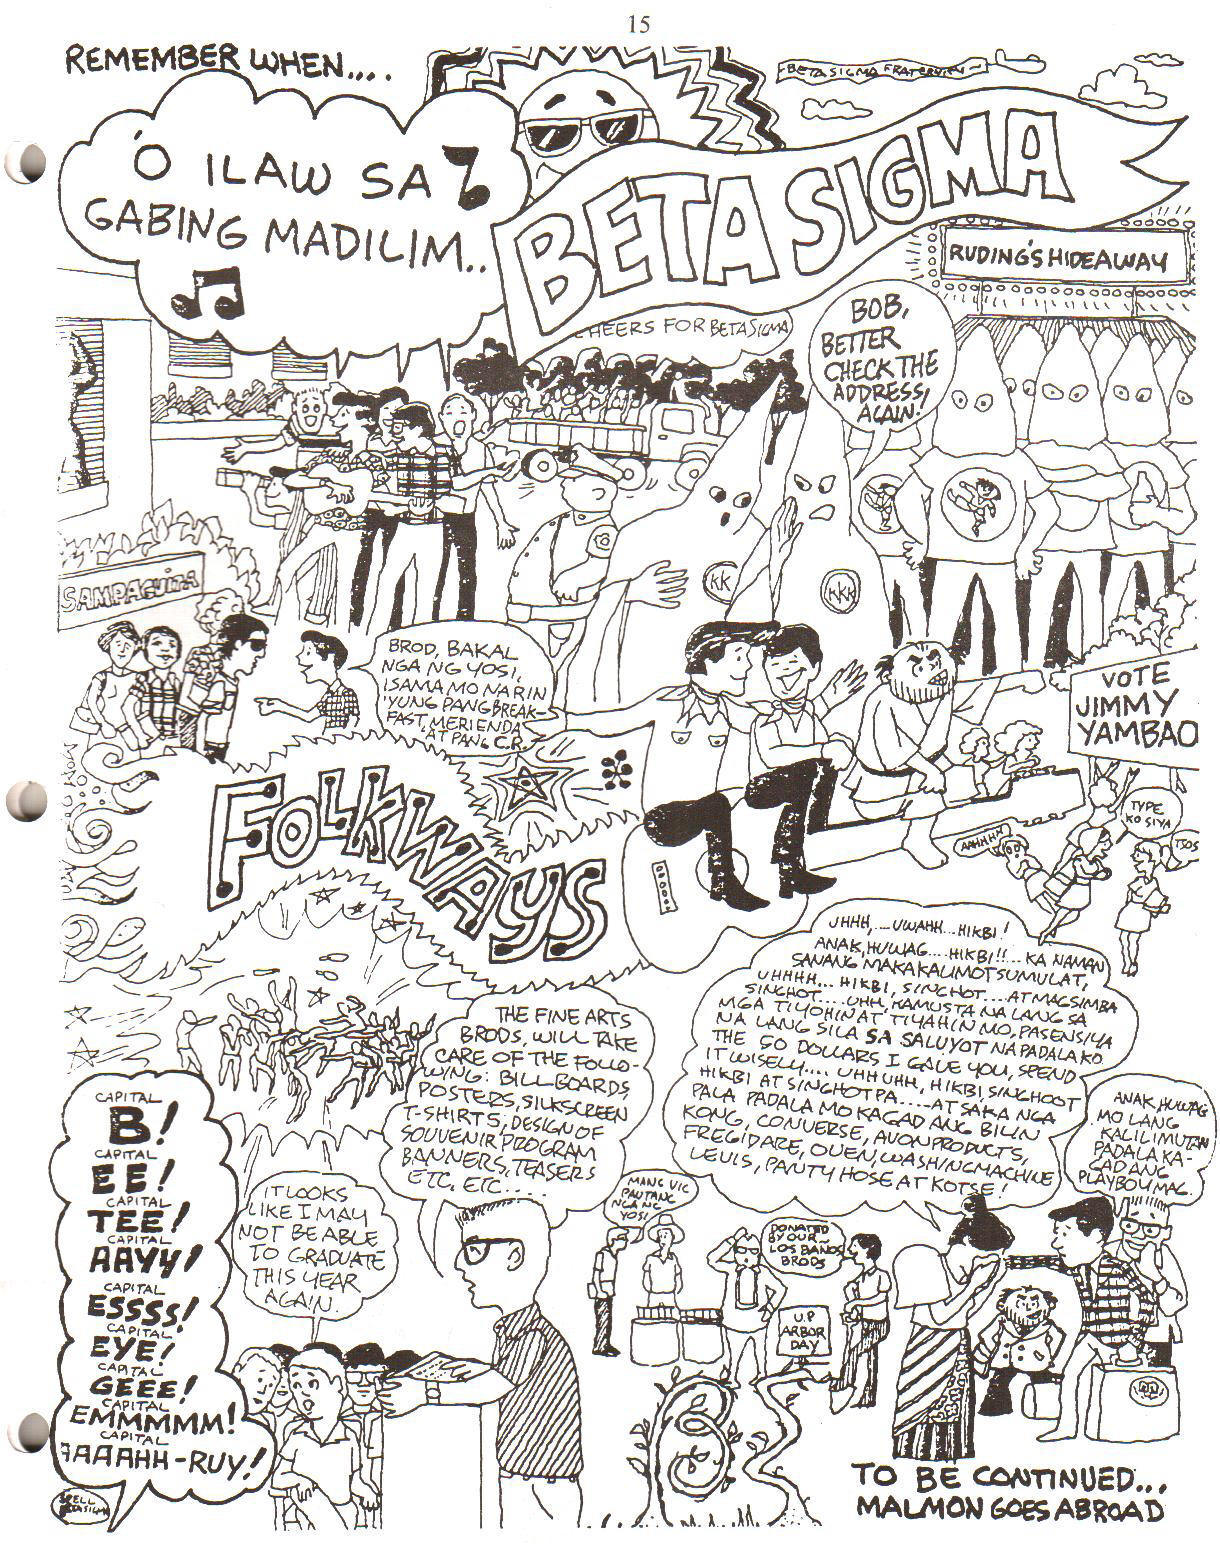 15
REMEMBER WHEN....
'O ILAW SA
GABING MADILIM..
BETA SIGMA FRATERNITY
BETA SIGMA
RUDING'S HIDEAWAY
CHEERS FOR BETA SIGMA
BOB,
BETTER
CHECK THE
ADDRESS
AGAIN!
SAMPAGUITA
KK
KKK
BROD, BAKAL
NGA NG YOSI,
ISAMA MO NA RIN
'YUNG PANG BREAK-
FAST, MERIENDA
AT PANG C.R.
VOTE
JIMMY
YAMBAO
FOLKWAYS
TYPE
KO SIYA
AAHHHH
TSOS
UHHH,....UWAHH...HIKBI!
ANAK, HUWAG....HIKBI!!... KA NAMAN
SANANG MAKAKALIMOT SUMULAT,
UHHHH... HIKBI, SINGHOT....AT MAGSIMBA
SINGHOT.....UHH, KAMUSTA NA LANG SA
MGA TIYOHIN AT TIYAHIN MO, PASENSIYA
NA LANG SILA SA SALUYOT NA PADALA KO
THE 50 DOLLARS I GAVE YOU, SPEND
IT WISELY.... UHHUHH, HIKBI SINGHOOT
HIKBI AT SINGHOT PA....AT SAKA NGA
PALA PADALA MO KAGAD ANG BILIN
KONG, CONVERSE, AVON PRODUCTS,
FREGIDARE, OVEN, WASHING MACHINE
LEVIS, PANTY HOSE AT KOTSE!
THE FINE ARTS
BRODS, WILL TAKE
CARE OF THE FOLLO-
WING: BILLBOARDS,
POSTERS, SILKSCREEN
T-SHIRTS, DESIGN OF
SOUVENIR PROGRAM
BANNERS, TEASERS
ETC. ETC....
ANAK, HUWAG
MO LANG
KALILIMUTAN
PADALA KA-
GAD ANG
PLAYBOY MAG.
CAPITAL
B!
CAPITAL
EE!
CAPITAL
TEE!
CAPITAL
AAYY!
CAPITAL
ESSSS!
CAPITAL
EYE!
CAPITAL
GEEE!
CAPITAL
EMMMMM!
CAPITAL
AAAAHH-RUY!
SPELL
BETA SIGMA
IT LOOKS
LIKE I MAY
NOT BE ABLE
TO GRADUATE
THIS YEAR
AGAIN.
MANG VIC
PAUTANG
NGA NG
YOSI
DONATED
BY OUR
LOS BAÑOS
BRODS
U.P
ARBOR
DAY
TO BE CONTINUED...
MALMON GOES ABROAD